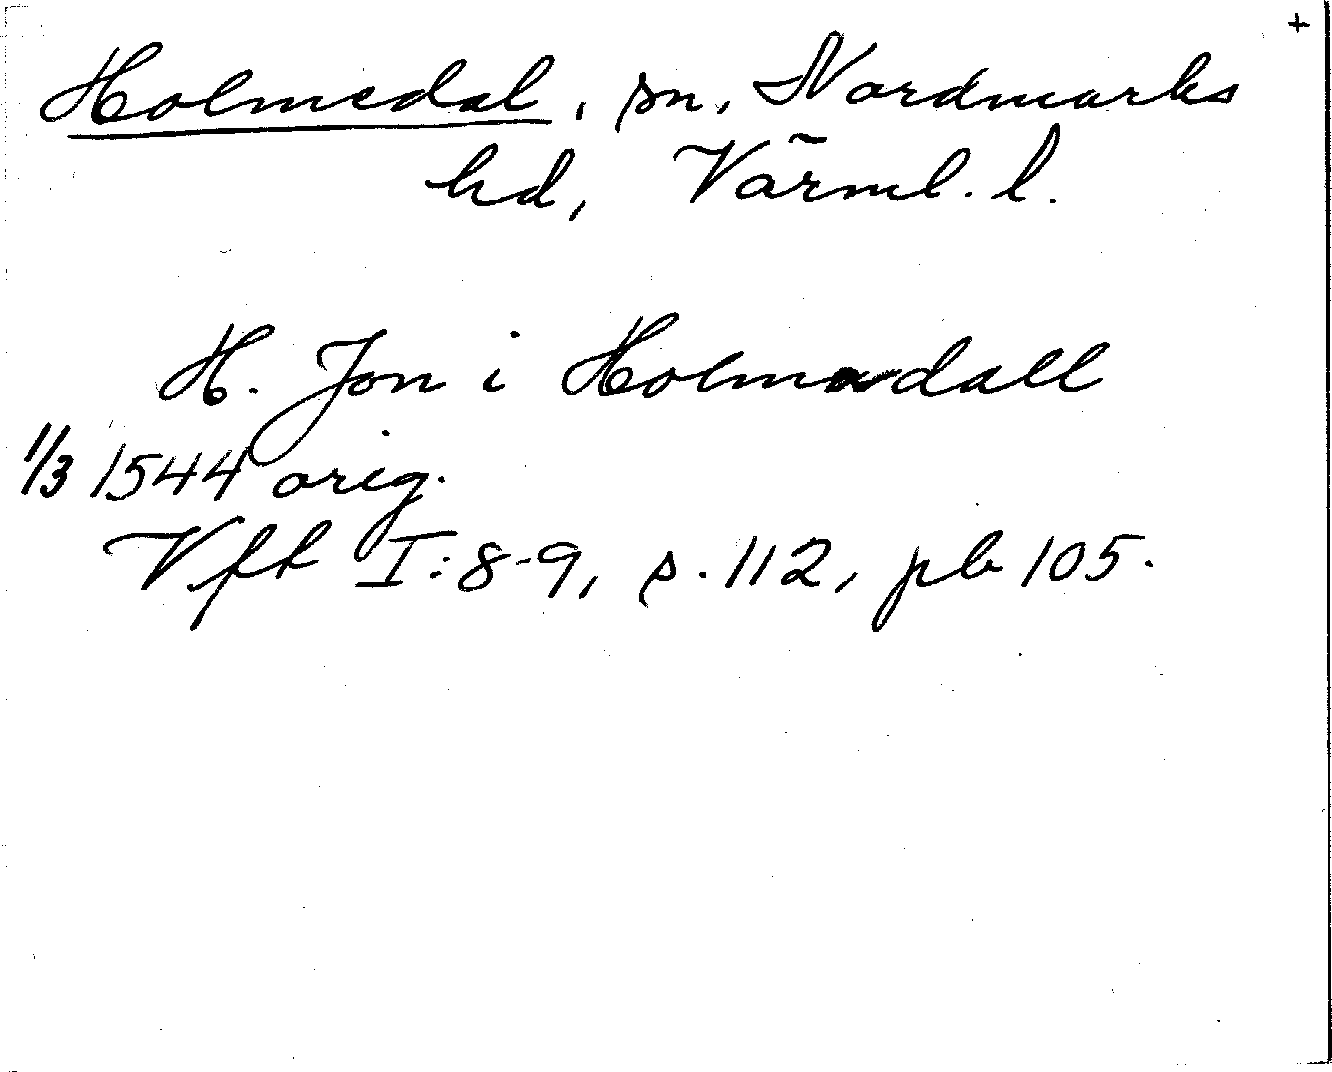 +
Holmedal, sn, Nordmarks
hd, Värml. l.
H. Jon i Holmadall
1/3 1544 orig.
Vfh I:8-9, s. 112, pb 105.